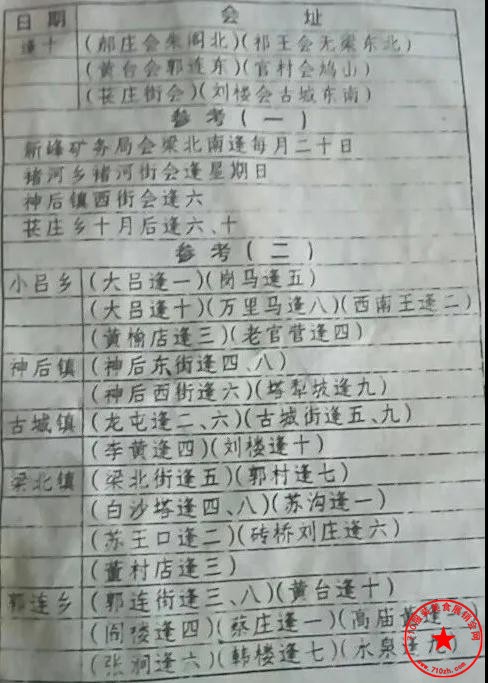 日期 会址
逢十 (郝庄会朱阁北)(祁王会无梁东北)
(黄台会郭连东)(官村会鸠山)
(苌庄街会)(刘楼会古城东南)
参考(一)
新峰矿务局会梁北南逢每月二十日
褚河乡褚河街会逢星期日
神后镇西街会逢六
苌庄乡十月后逢六、十
参考(二)
小吕乡 (大吕逢一)(岗马逢五)
(大吕逢十)(万里马逢八)(西南王逢二)
(黄榆店逢三)(老官营逢四)
神后镇 (神后东街逢四、八)
(神后西街逢六)(塔梨坡逢九)
古城镇 (龙屯逢二、六)(古城街逢五、九)
(李黄逢四)(刘楼逢十)
梁北镇 (梁北街逢五)(郭村逢七)
(白沙塔逢四、八)(苏沟逢一)
(苏王口逢二)(砖桥刘庄逢六)
(董村店逢三)
郭连乡 (郭连街逢三、八)(黄台逢十)
(阎陵逢四)(蔡庄逢一)(高庙黄逢
(张涧逢六)(韩楼逢七)(水泉逢九)
www.710zh.com